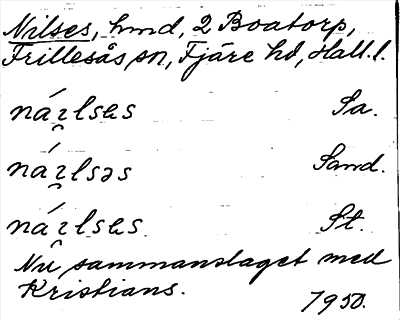 Nilses, hmd, 2 Boatorp,
Frillesås sn, Fjäre hd, Hall. l.
Sa.
Sand.
St.
Nu sammanslaget med
Kristians.
1950.